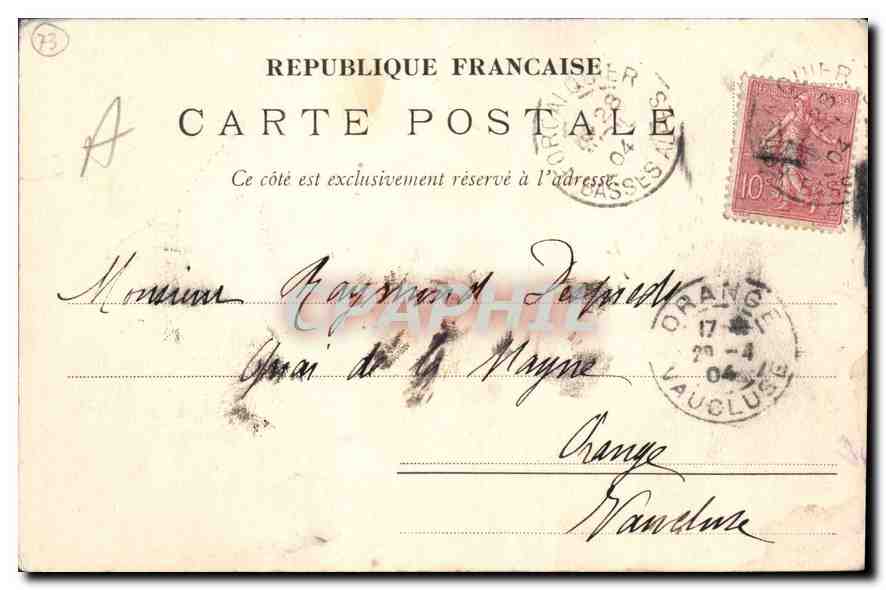 73
A
REPUBLIQUE FRANCAISE
CARTE POSTALE
Ce côté est exclusivement réservé à l'adresse
FORCALQUIER
28
04
BASSES ALPES
10c
Monsieur Raymond
CPAPHIL
Quai de la Mayne
ORANGE
17
29 -4
04
VAUCLUSE
Orange
Vaucluse